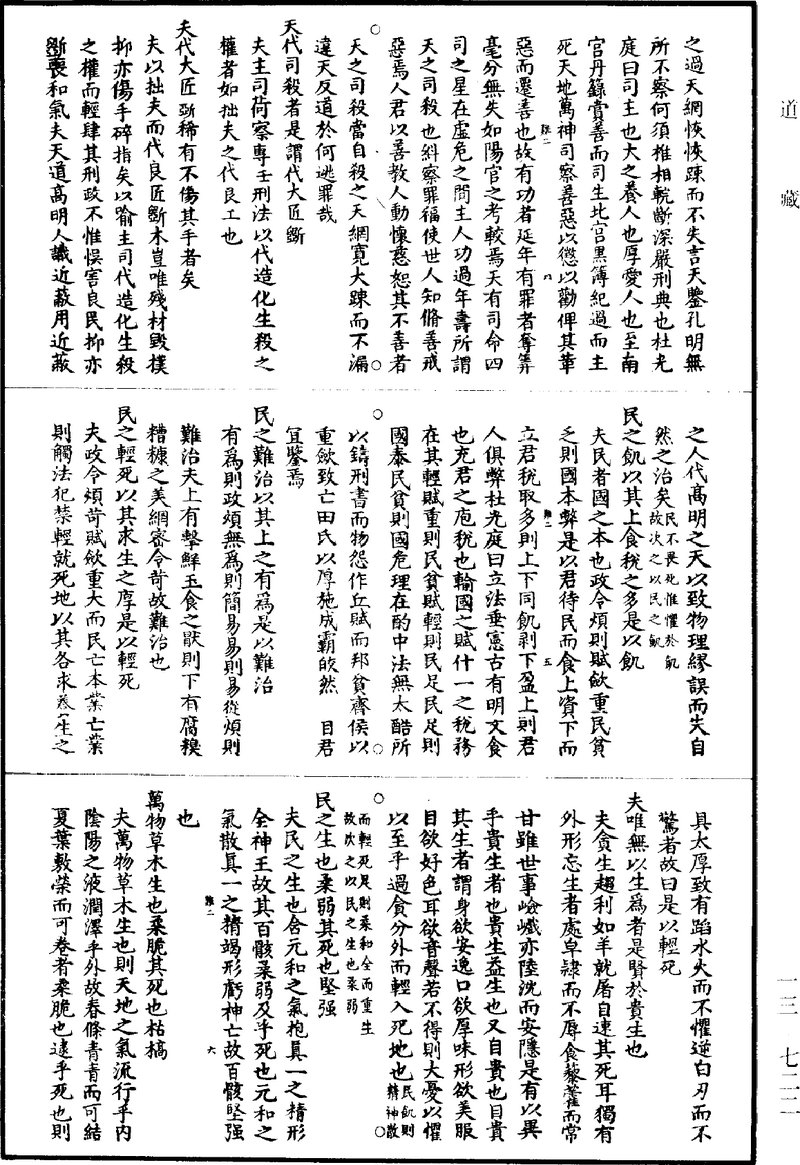 道藏
之過天網恢恢踈而不失言天鑒孔明無
所不察何須椎相輐斷深嚴刑典也杜光
庭曰司主也大之養人也厚愛人也至南
宮丹籙賞善而司生北宮黑簿紀過而主
死天地萬神司察善惡以懲以勸俾其革
惡而遷善也故有功者延年有罪者奪筭
毫分無失如陽官之考較焉天有司命四
司之星在虛危之間主人功過年壽所謂
天之司殺也糾察罪福使世人知脩善戒
惡焉人君以善教人動懷慈恕其不善者
天之司殺當自殺之天網寬大踈而不漏
違天反道於何逃罪哉
天代司殺者是謂代大匠斵
夫主司荷察專壬刑法以代造化生殺之
權者如拙夫之代良工也
夫代大匠斵稀有不傷其手者矣
夫以拙夫而代良匠斵木豈唯殘材毀樸
抑亦傷手碎指矣以喻主司代造化生殺
之權而輕肆其刑政不惟悮害良民抑亦
斵喪和氣夫天道高明人識近蔽用近蔽
之人代高明之天以致物理繆誤而失自
然之治矣民不畏死惟懼於飢故次之以民之飢
民之飢以其上食稅之多是以飢
夫民者國之本也政令煩則賦歛重民貧
乏則國本弊是以君待民而食上資下而
立君稅取多則上下同飢剥下盈上則君
人俱弊杜光庭曰立法垂憲古有明文食
也充君之庖稅也輸國之賦什一之稅務
在其輕賦重則民貧賦輕則民足民足則
國泰民貧則國危理在酌中法無太酷所
以鑄刑書而物怨作丘賦而邦貧齊侯以
重歛致亡田氏以厚施成霸皎然目君
宜鑒焉
民之難治以其上之有為是以難治
有為則政煩無為則簡易易則易從煩則
難治夫上有擊鮮玉食之猒則下有腐糗
糟糠之美網密令苛故難治也
民之輕死以其求生之厚是以輕死
夫政令煩苛賦歛重大而民亡本業亡業
則觸法犯禁輕就死地以其各求養生之
具太厚致有蹈水火而不懼逆白刃而不
驚者故曰是以輕死
夫唯無以生為者是賢於貴生也
夫貪生趨利如羊就屠自速其死耳獨有
外形忘生者處卑隷而不辱食藜藿而常
甘雖世事嶮巇亦陸沈而安隱是有以異
乎貴生者也貴生益生也又自貴也目貴
其生者謂身欲安逸口欲厚味形欲美服
目欲好色耳欲音聲若不得則大憂以懼
以至乎過貪分外而輕入死地也民飢則精神散
而輕死是則柔和全而重生故次之以民之生也柔弱
民之生也柔弱其死也堅强
夫民之生也含元和之氣抱真一之精形
全神王故其百骸柔弱及乎死也元和之
氣散真一之精竭形虧神亡故百骸堅强
也
萬物草木生也柔脆其死也枯槁
夫萬物草木生也則天地之氣流行乎内
陰陽之液潤澤乎外故春條青青而可結
夏葉敷榮而可卷者柔脆也逮乎死也則
一三 七二二